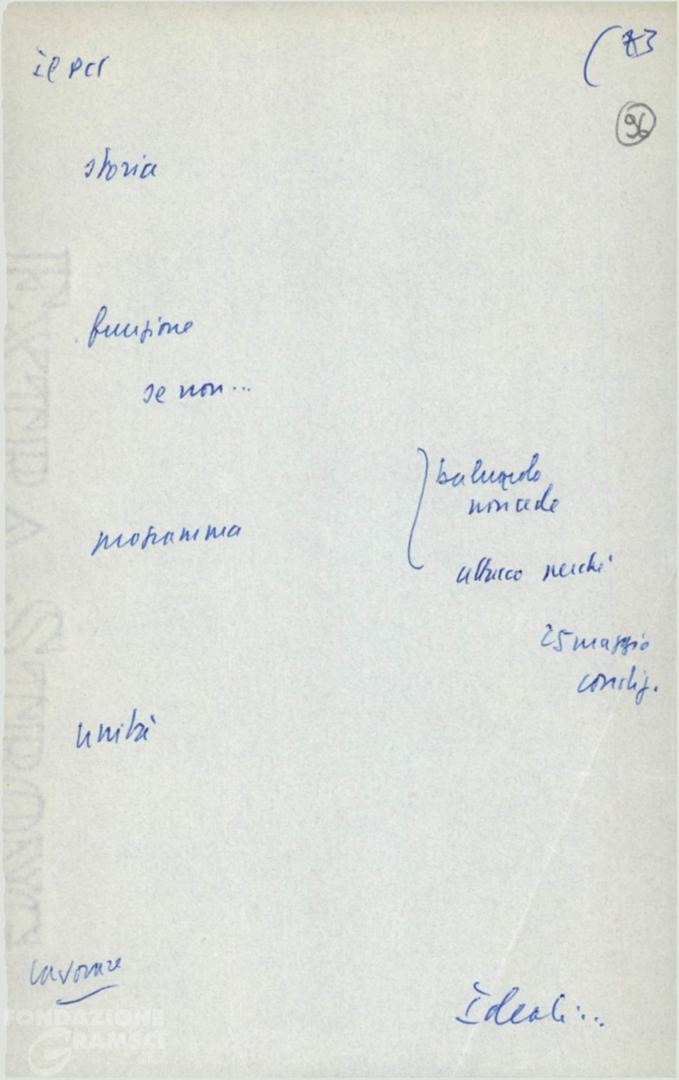 il PCI
(13
96
storia
funzione
se non...
baluardo
non cede
programma
attacco perché
25 maggio
condiz.
unità
lavorare
Ideali...
FONDAZIONE
GRAMSCI